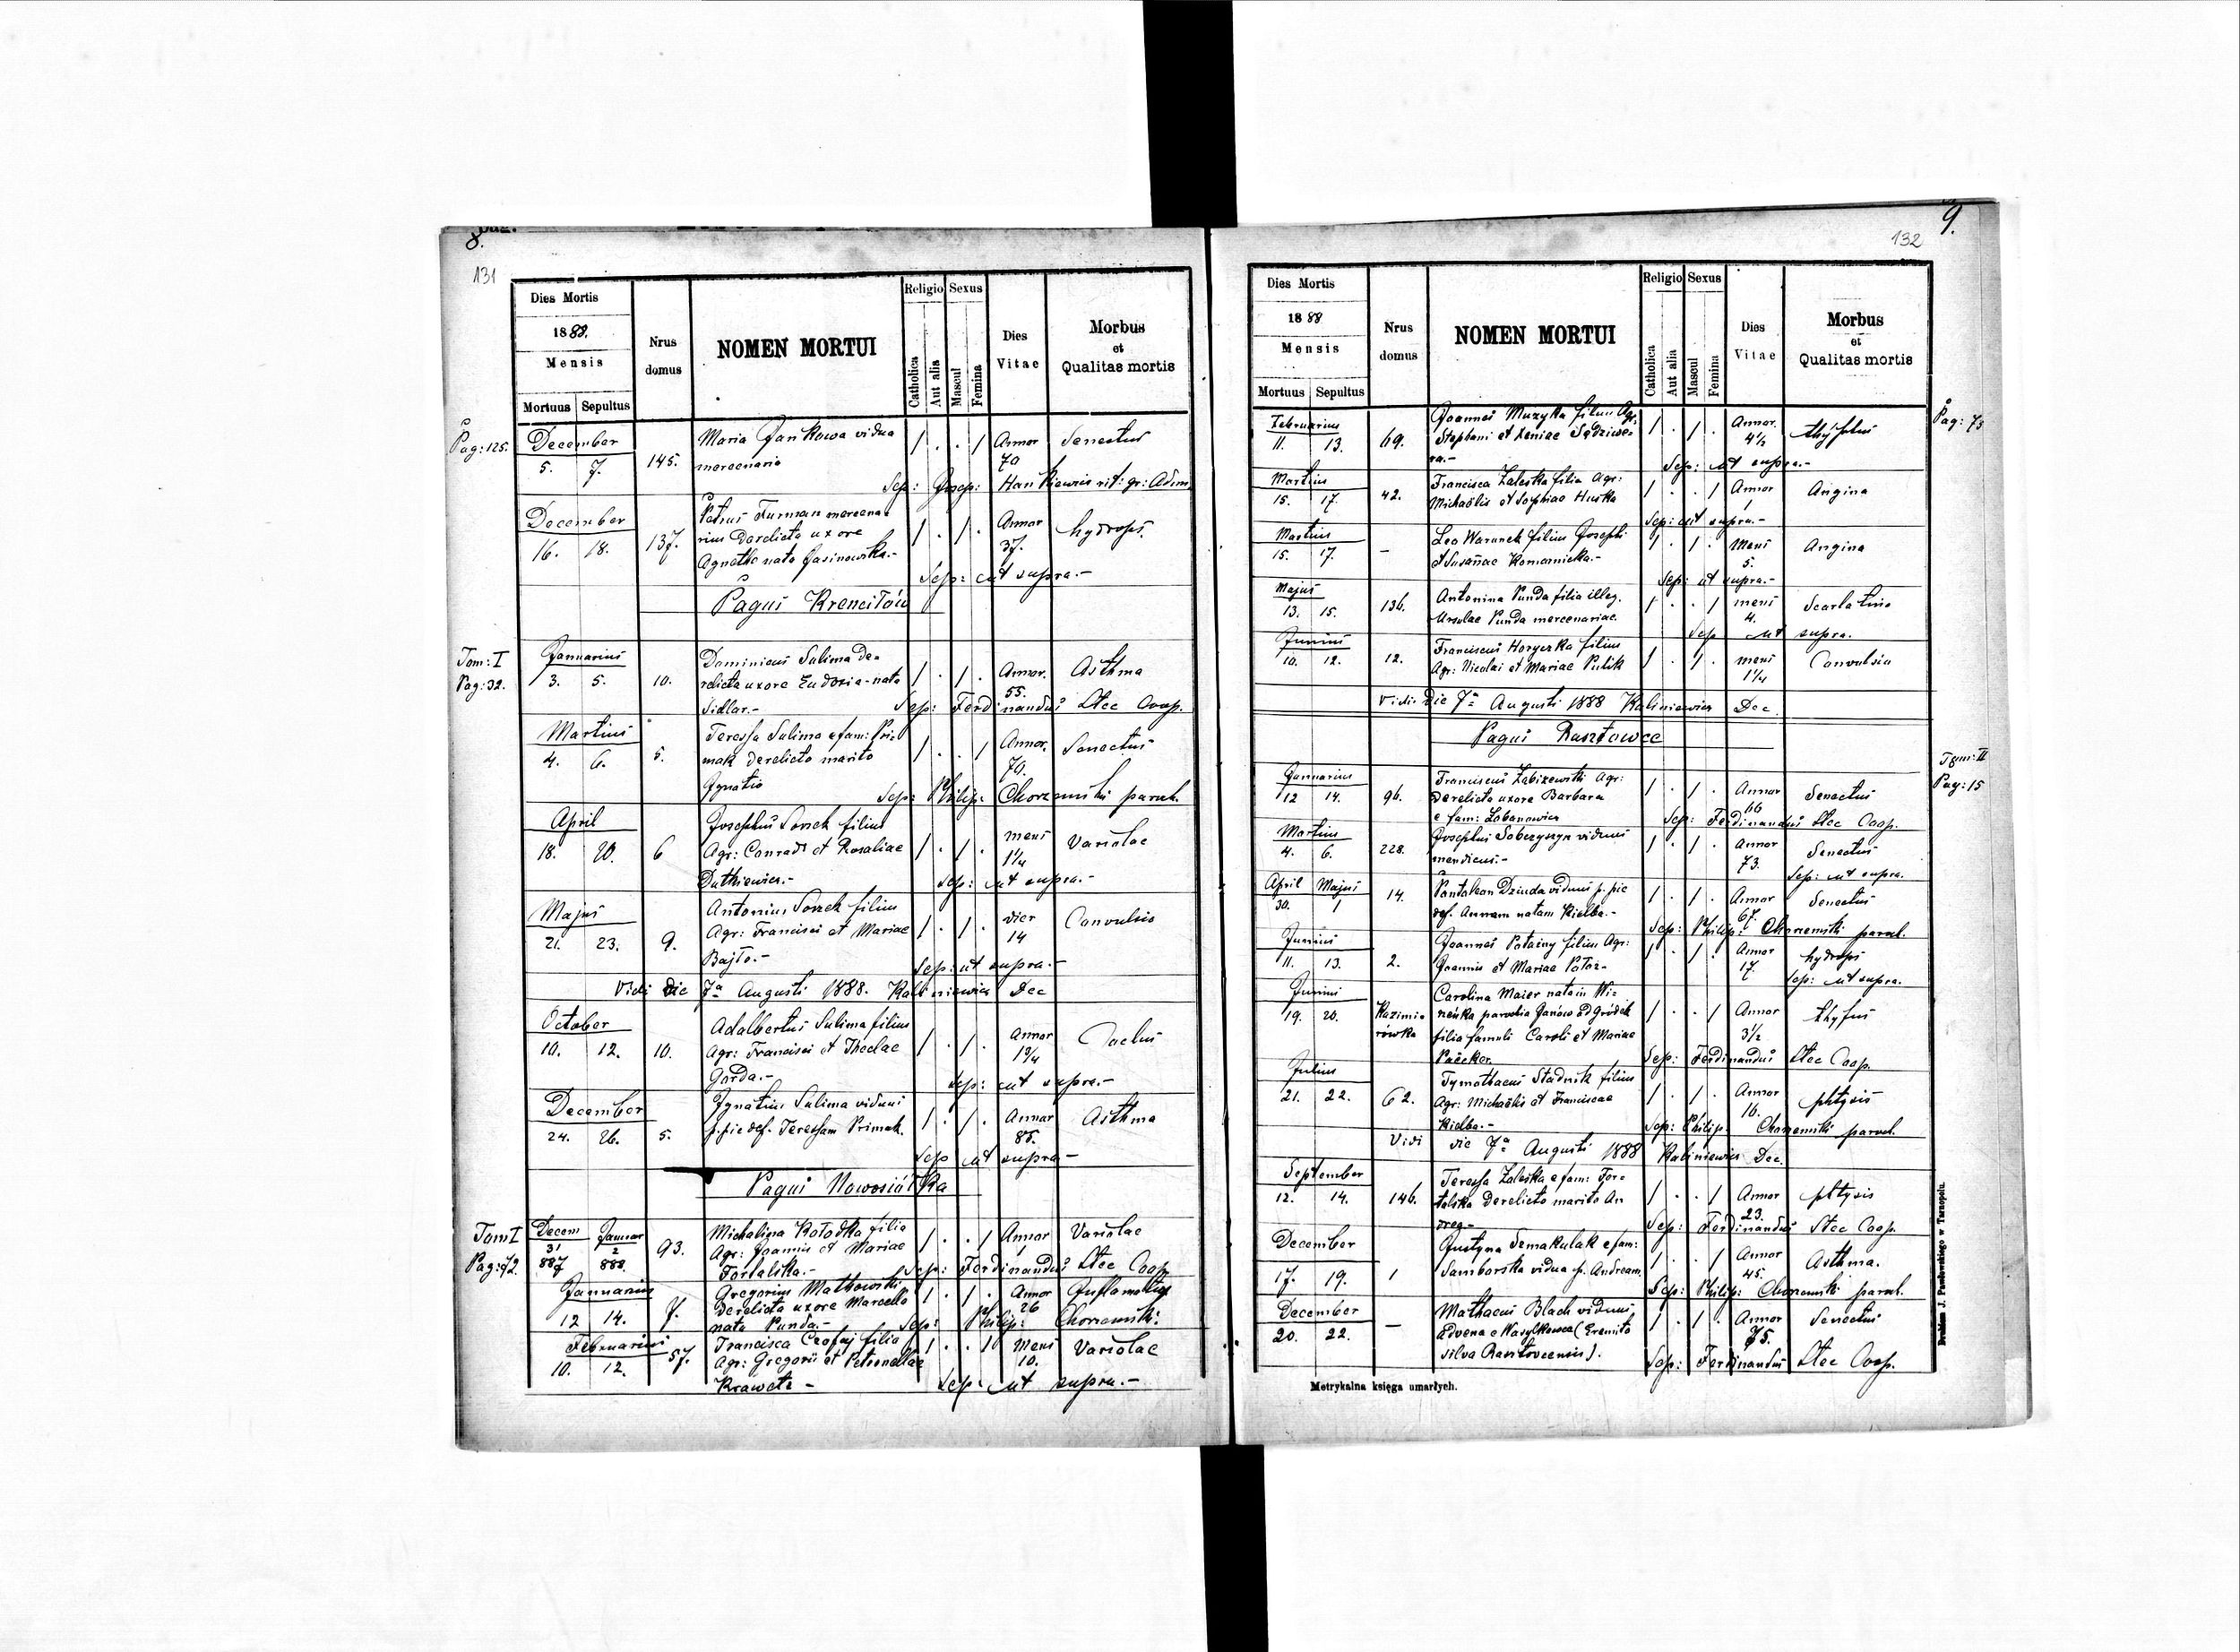 8.
131
Dies Mortis
1888.
Mensis
Mortuus Sepultus
Nrus domus
NOMEN MORTUI
Religio Sexus
Catholica Aut alia Mascul Femina
Dies Vitae
Morbus et Qualitas mortis
Pag: 125.
December
5. 7. 145.
Maria Jankowa vidua
mercenaria
Annor 70
Senectus
Sep: Josep: Hankiewicz rit: gr: Adm
December
16. 18. 137.
Petrus Furman mercena-
rius derelicta uxore
Agnetha nata Jasinowska.-
Annor 37.
hydrops.
Sep: ut supra.-
Pagus Krencilów
Tom: I
Pag: 32.
Januarius
3. 5. 10.
Dominicus Sulima de-
relicta uxore Eudoxia nata
Sidlar.-
Annor. 55.
Asthma
Sep: Ferdinandus Stec Coop.
Martius
4. 6. 5.
Teressa Sulima e fam: Pri-
mak derelicto marito
Ignatio
Annor. 70.
Senectus
Sep: Philip: Chorzemski paroch.
April
18. 20. 6
Josephus Sossek filius
Agr: Conradi et Rosaliae
Dutkiewicz.-
mens 1 1/4
Variolae
Sep: ut supra.-
Majus
21. 23. 9.
Antonius Sossek filius
Agr: Francisci et Mariae
Bajto.-
dier 14
Convulsio
Sep: ut supra.-
Vidi die 7a Augusti 1888. Kaliniewicz Dec
October
10. 12. 10.
Adalbertus Sulima filius
Agr: Francisci et Theclae
Gorda.-
Annor
Sep: ut supra.-
December
24. 26. 5.
Ignatius Sulima viduus
p. pie def. Teressam Primak.
Annor 85.
Asthma
Sep ut supra-
Pagus Nowosiółka
Tom I
Pag: 72.
Decem 31 887
Januar 2 888.
93.
Michalina Kołodka filia
Agr: Joannis et Mariae
Fortalska.-
Annor 1
Variolae
Sep: Ferdinandus Stec Coop
Januarius
12 14. 7.
Gregorius Matkowski
derelicta uxore Marcella
nata Punda.-
Annor 26
Sep: Philip: Chorzemski:
Februarius
10. 12. 57.
Francisca filia
Agr: Gregorii et Petronellae
Krawetz -
Mens 10.
Variolae
Sep: ut supra.-
9.
132
Dies Mortis
1888
Mensis
Mortuus Sepultus
Nrus domus
NOMEN MORTUI
Religio Sexus
Catholica Aut alia Mascul Femina
Dies Vitae
Morbus et Qualitas mortis
Pag: 73
Februarius
11. 13. 69.
Joannes Muzyka filius Agr.
Stephani et Xeniae
Annor. 4 1/2
thyphus
Sep: ut supra.-
Martius
15. 17. 42.
Francisca Zaleska filia Agr:
Michaëlis et Sophiae Huska
Annor 1
Angina
Sep: ut supra.-
Martius
15. 17. -
Leo Warunek filius Josephi
et Susañae Komarnicka.-
Mens 5.
Angina
Sep: ut supra.-
Majus
13. 15. 136.
Antonina Punda filia illeg.
Ursulae Punda mercenariae.
mens 4.
Scarlatina
Sep ut supra.
Junius
10. 12. 12.
Franciscus Horyczka filius
Agr: Nicolai et Mariae Pulik
mens 1 1/4
Convulsio
Vidi die 7a Augusti 1888 Kaliniewicz Dec.
Pagus Rasztowce
Tom: II
Pag: 15
Januarius
12 14. 96.
Franciscus Łabiszewski Agr:
derelicta uxore Barbara
e fam: Łobanowicz
Annor 66
Senectus
Sep: Ferdinandus Stec Coop.
Martius
4. 6. 228.
Josephus Soboryszyn viduus
mendicus.-
Annor 73.
Senectus
Sep: ut supra.
April Majus
30. 1 14.
Pantaleon Dziuda viduus p. pie
def. Annam natam Kielba.-
Annor 67.
Senectus
Sep: Philip: Chorzemski paroch.
Junius
11. 13. 2.
Joannes Potażny filius Agr:
Joannis et Mariae
Annor 17.
hydrops
Sep: ut supra.
Junius
19. 20.
Kazimi-
rówka
Carolina Maier nata in Wi-
parochia Janów ad Gródek
filia famuli Caroli et Mariae
Paecker
Annor 3 1/2
thyfus
Sep: Ferdinandus Stec Coop.
Julius
21. 22. 62.
Tymothaeus Stadnik filius
Agr: Michaëlis et Franciscae
Kielba.-
Annor 16.
phtysis
Sep: Philip: Chorzemski paroch.
Vidi die 7a Augusti 1888 Kaliniewicz Dec.
September
12. 14. 146.
Teressa Zaleska e fam: For-
talska derelicto marito An
drea-
Annor 23.
phtysis
Sep: Ferdinandus Stec Coop.
December
17. 19. 1
Justyna Semakulak e fam:
Samborska vidua p. Andream.
Annor 45.
Asthma.
Sep: Philip: Chorzemski paroch.
December
20. 22. -
Mathaeus Blach viduus,
advena e Wasylkowce (Eremita
silva Rasztovcensis).
Annor 75.
Senectus
Sep: Ferdinandus Stec Coop.
Metrykalna księga umarłych.
Drukiem J. Pawłowskiego w Tarnopolu.